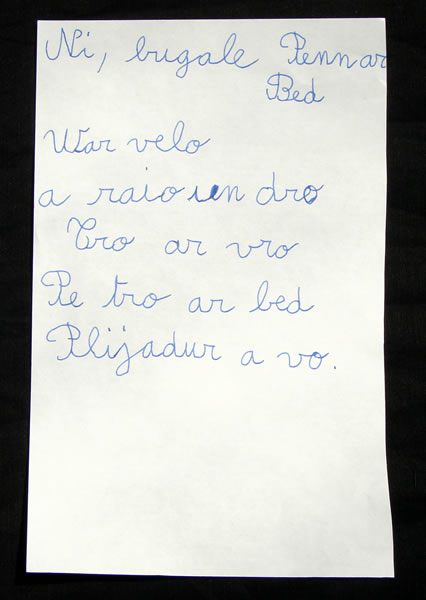 Ni, bugale Pennar
Bed
War velo
a raio un dro
Tro ar vro
Pe tro ar bed
Plijadur a vo.